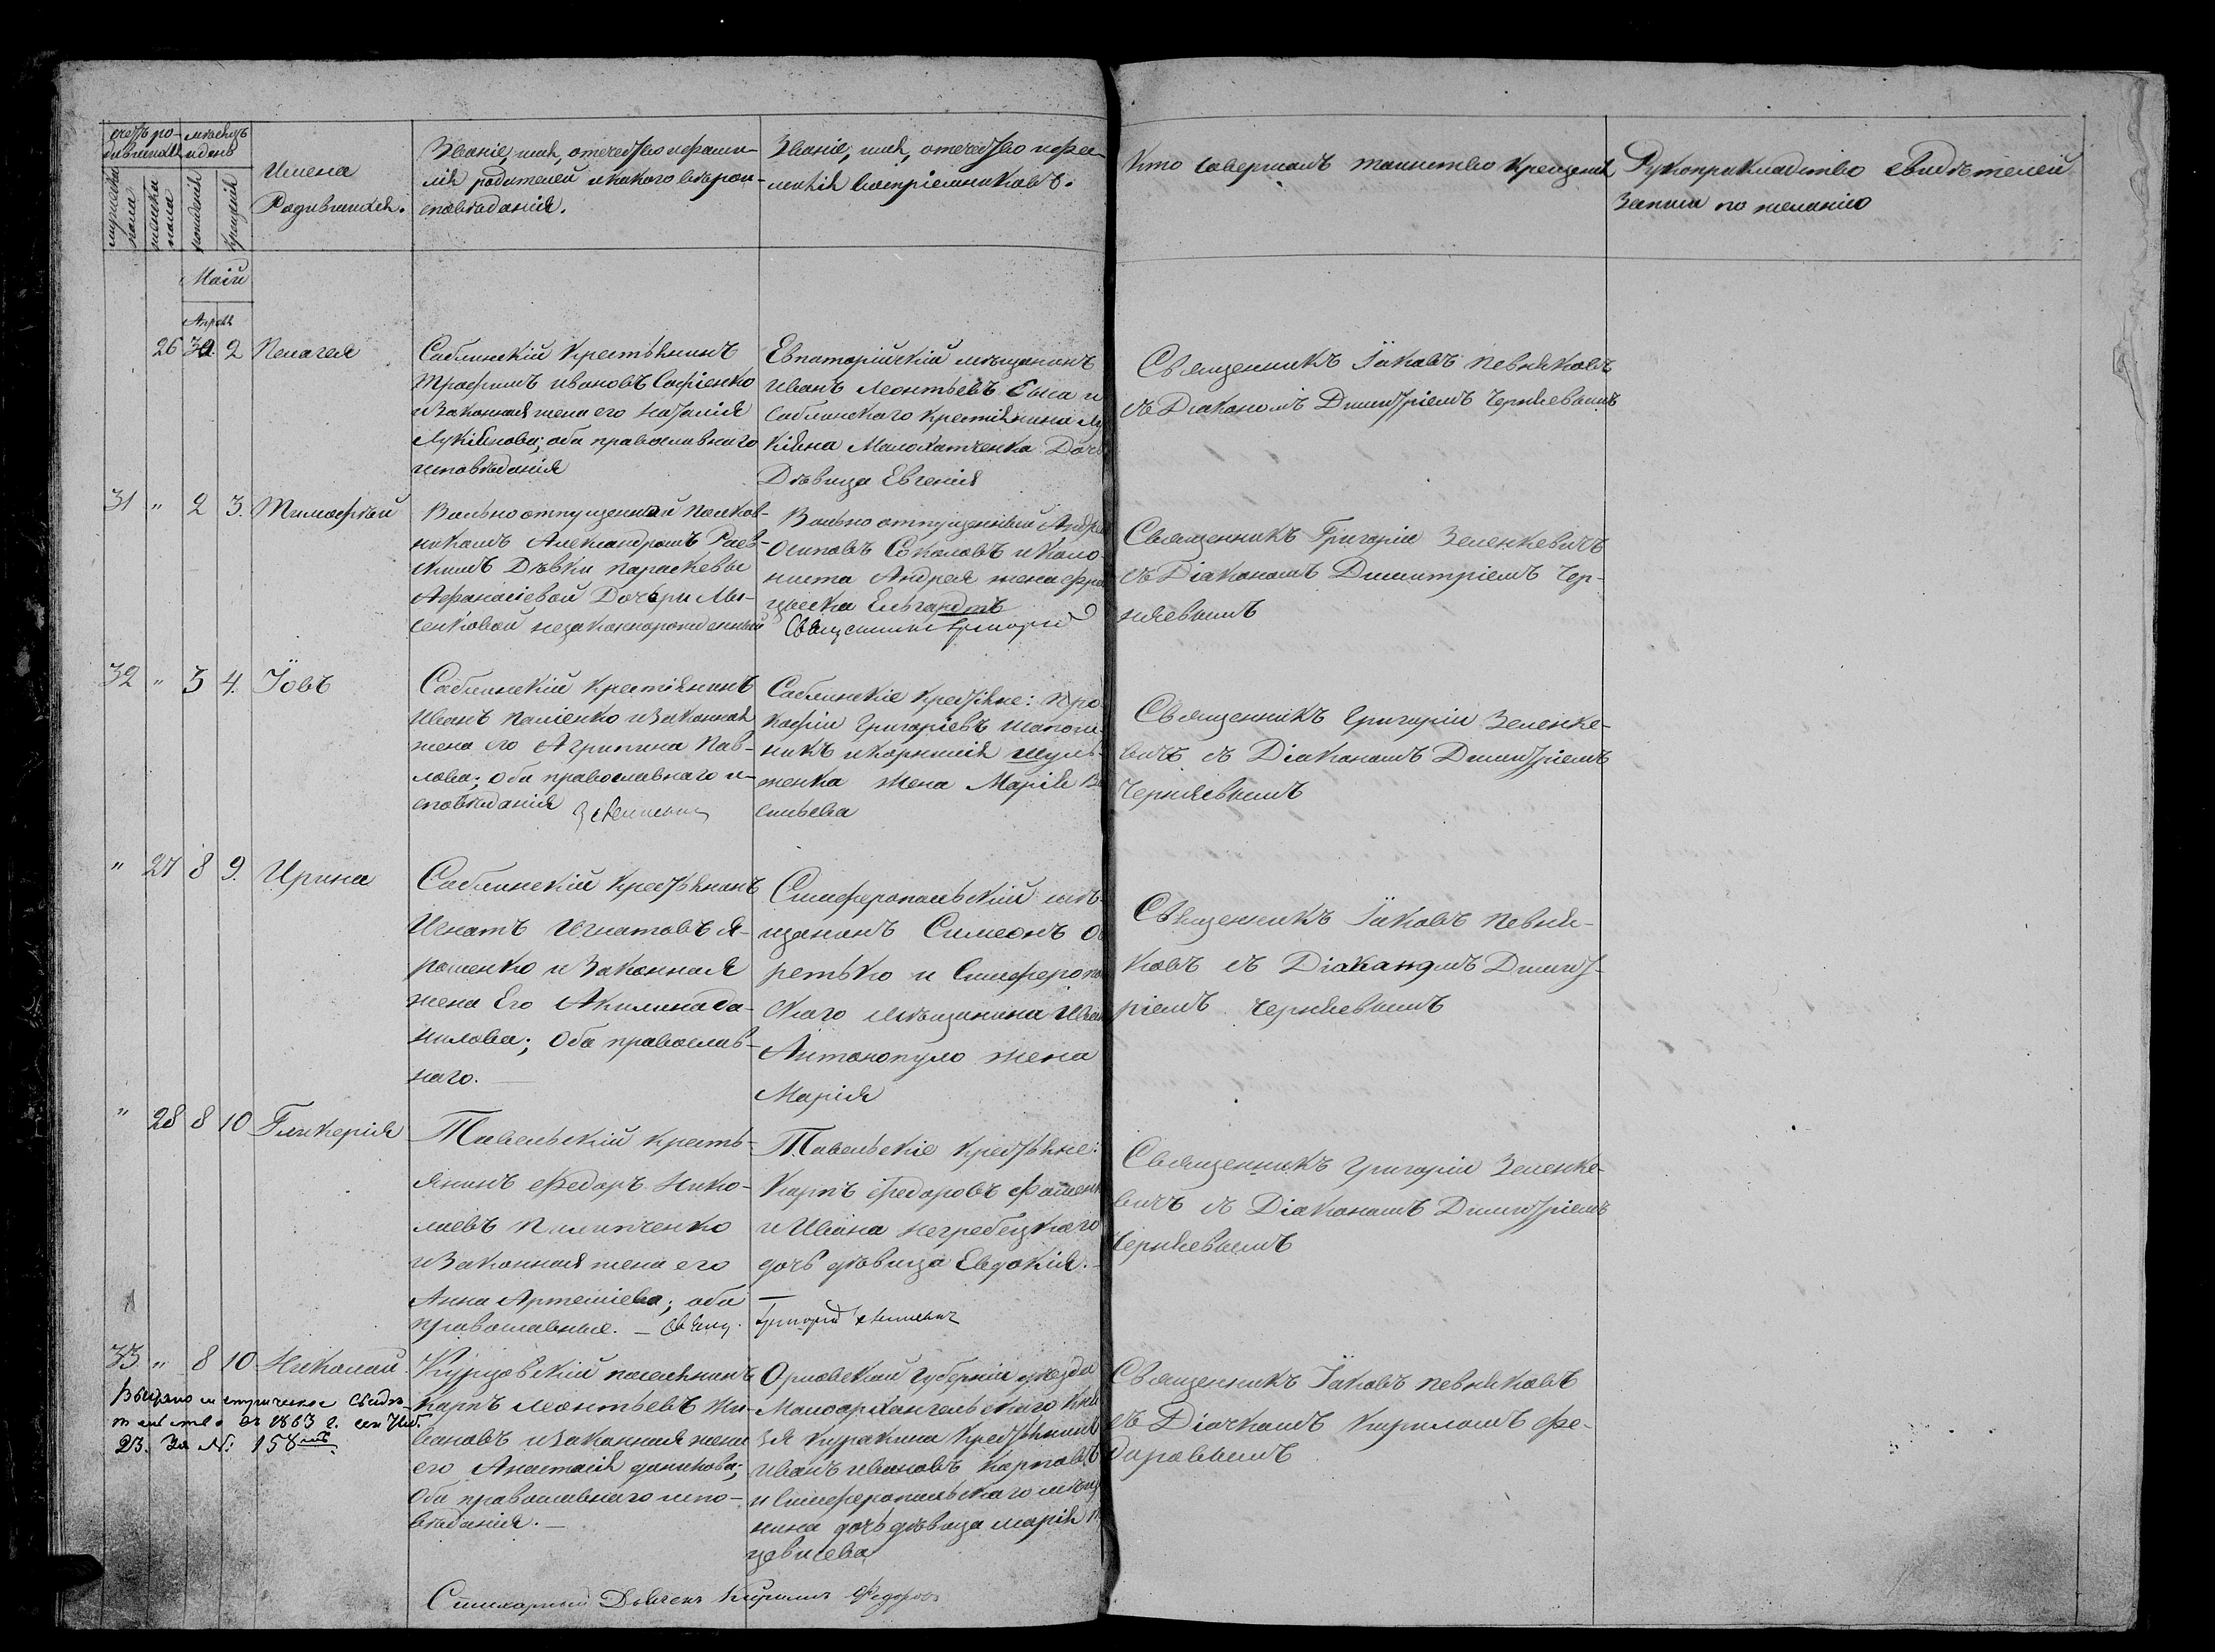 счетъ ро-
дившихся
мѣсяцъ
и день
мужеска
пола
женска
пола
рожденія
крещенія
Имена
Родившихся.
Званіе, имя, отечество и фами-
лія родителей и какого вѣрои-
сповѣданія.
Званіе, имя, отечество и фа-
милія воспріемниковъ.
Кто совершалъ таинство крещенія
Рукоприкладство свидѣтелей
записи по желанію
Маій
Апрѣл
26 30. 2 Пелагея
Саблинскій крестьянинъ
Трофимъ Ивановъ Софіенко
и законная жена его Наталія
Лукіянова; оба православнаго
исповѣданія
Евпаторійскій мѣщанинъ
Иванъ Леонтьевъ Сыса и
Саблинскаго крестьянина Лу
кіяна Малохатченка Дочь
Дѣвица Евгенія
Священникъ Іаковъ Певняковъ
съ Діакономъ Димитріемъ Чернявымъ
31 " 2 3. Тимофѣй
Вольноотпущенной Полков-
никомъ Александромъ Раев-
скимъ Дѣвки Параскевы
Афанасіевой Дочери Лы-
сенковой незаконнорожденный
Вольноотпущенный Андрей
Осиповъ Соколовъ и Коло-
ниста Андрея жена Фра
цыска Ельгардтъ
Священникъ Григорій
Священникъ Григорій Зеленкевичъ
съ Діакономъ Димитріемъ Чер-
нявымъ
32 " 3 4. Іовъ
Саблинскій крестьянинъ
Иванъ Паліенко и законная
жена его Агрипина Пав-
лова; оба православнаго и-
сповѣданія
Зеленкевичъ
Саблинскіе крестьяне: Про
кофій Григоріевъ Шапош
никъ и Корнилія Шуль-
женка жена Марія Ва
сильева
Священникъ Григорій Зеленке-
вичъ съ Діакономъ Димитріемъ
Чернявымъ
" 27 8 9. Ирина
Саблинскій крестьянинъ
Игнатъ Игнатовъ Я-
рошенко и законная
жена Его Акилина Да-
нилова; Оба православ-
наго.
Симферопольскій мѣ-
щанинъ Симеонъ О
ретько и Симферопо
скаго мѣщанина Иван
Антонопуло жена
Марія
Священникъ Іаковъ Певня-
ковъ съ Діакономъ Димит-
ріемъ Чернявымъ
" 28 8 10 Гликерія
Тавельскій кресть-
янинъ Федоръ Нико-
лаевъ Пилипченко
и законная жена его
Анна Артеміева; оба
православные. — Свящ.
Тавельскіе крестьяне:
Карпъ Федоровъ Фоменк
и Ивана Негребецкаго
дочь дѣвица Евдокія.
Григорій Зеленкевичъ
Священникъ Григорій Зеленке-
вичъ съ Діакономъ Димитріемъ
Чернявымъ
33 " 8 10 Николай
Выдано метрическое свидѣ-
тельство въ 1863 г. сен
23. За №: 158мъ
Курцовскій поселянинъ
Карпъ Леонтьевъ Ки-
вановъ и законная жена
его Анастасія Данилова;
Оба православнаго испо-
вѣданія.—
Орловской Губерніи уѣзда
Малоархангельскаго Кня
зя Куракина крестьянинъ
Иванъ Ивановъ Карповъ
и Симферопольскаго мѣща
нина дочь дѣвица Марія
Священникъ Іаковъ Певняковъ
съ Дьячкомъ Кириломъ Фе-
доровымъ
Стихарный Дьячекъ Кирилъ Федоровъ